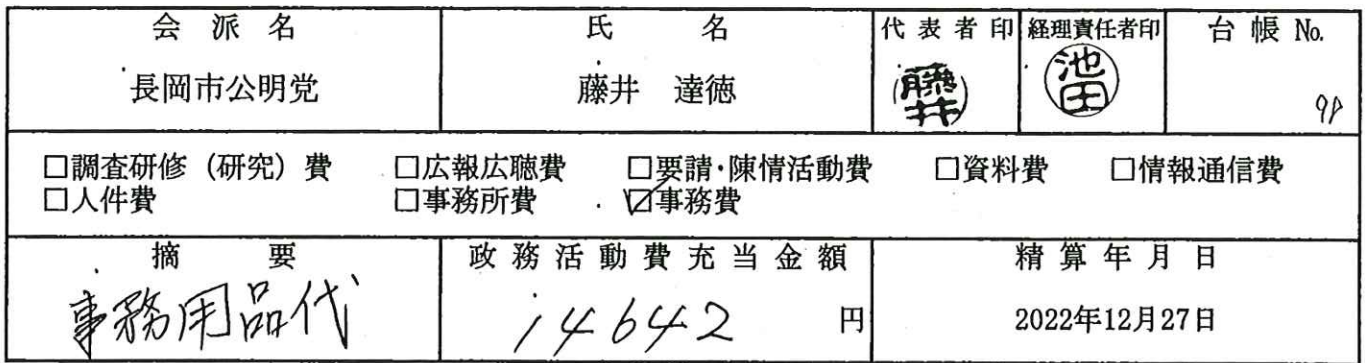 会派名 氏名 代表者印 経理責任者印 台帳No.
長岡市公明党 藤井 達徳 藤井 池田
□調査研修（研究）費 □広報広聴費 □要請・陳情活動費 □資料費 □情報通信費
□人件費 □事務所費 ☑事務費
摘要 政務活動費充当金額 精算年月日
事務用品代 14642 円 2022年12月27日